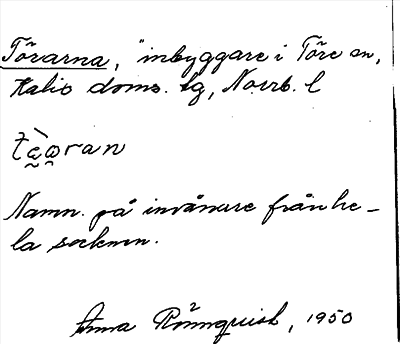 Törarna, inbyggare i Töre sn,
Kalix doms. lg, Norrb. l
Namn. på invånare från he-
la socknen.
Anna Rönnquist, 1950